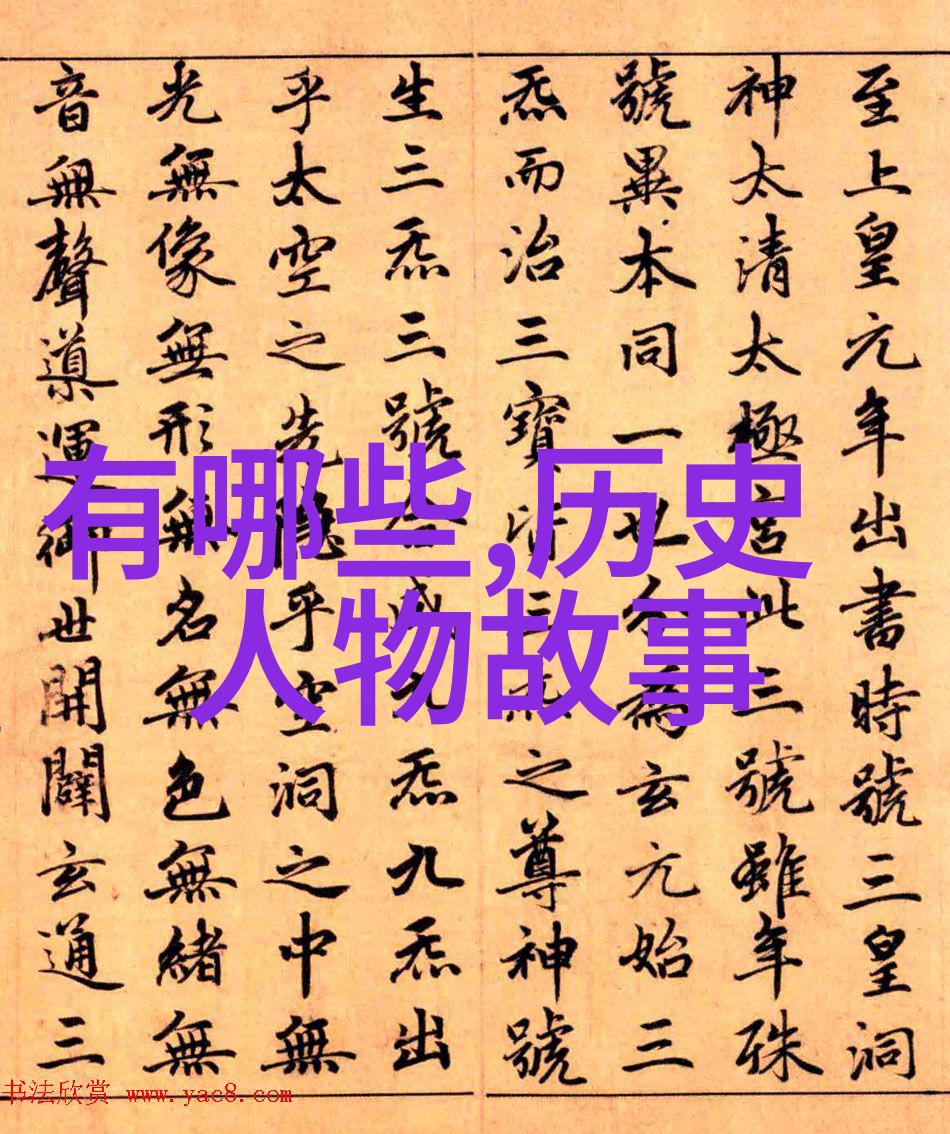 至上皇元年出書時號三皇洞
神太清太極宮此三號雖年殊
號異本同一也分為玄元始三
炁而治三寶皆三炁之尊神號
生三炁三號合成九炁九炁出
乎太空之先隱乎空洞之中無
光無像無形無名無色無緒無
音無聲導運御世開闢玄通三
有哪些,历史
人物故事
书法欣赏 www.yac8.com